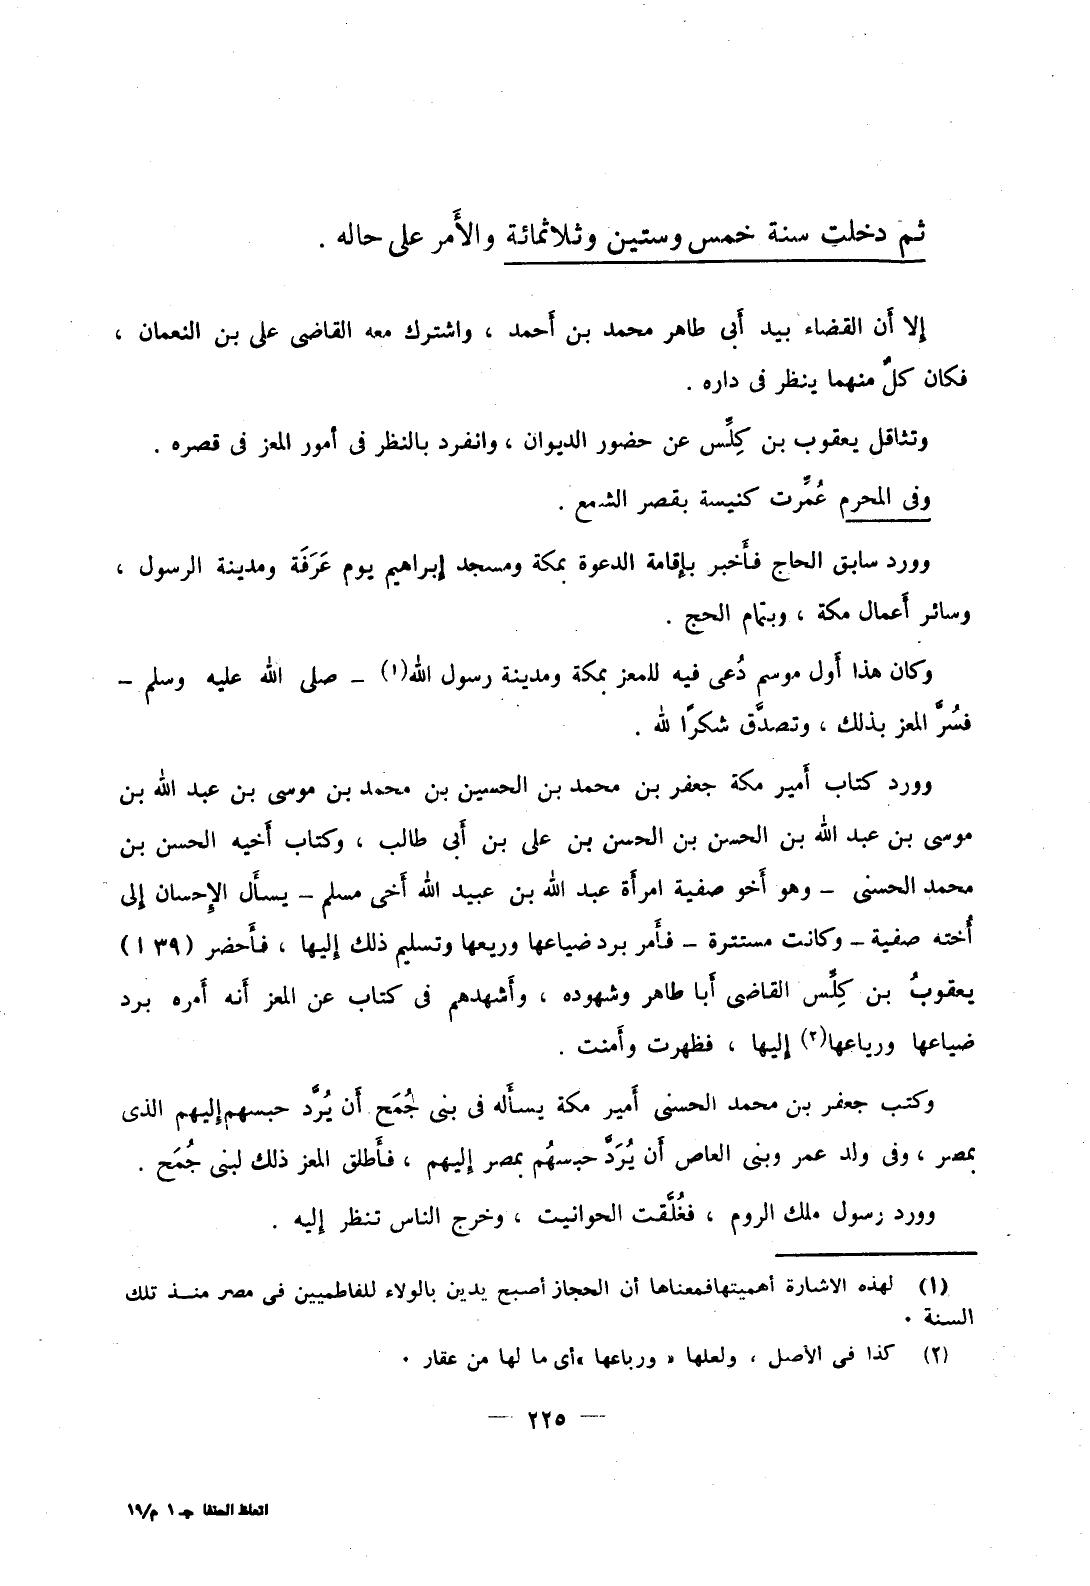 ثم دخلت سنة خمس وستين وثلاثمائة والأَمر على حاله .
إلا أَن القضاء بيد أَبى طاهر محمد بن أَحمد ، واشترك معه القاضى على بن النعمان ،
فكان كلٌ منهما ينظر فى داره .
وتثاقل يعقوب بن كِلِّس عن حضور الديوان ، وانفرد بالنظر فى أمور المعز فى قصره .
وفى المحرم عُمِّرت كنيسة بقصر الشمع .
وورد سابق الحاج فأَخبر بإقامة الدعوة بمكة ومسجد إبراهيم يوم عَرَفَة ومدينة الرسول ،
وسائر أَعمال مكة ، وبتمام الحج .
وكان هذا أَول موسم دُعى فيه للمعز بمكة ومدينة رسول الله(١) – صلى الله عليه وسلم –
فسُرَّ المعز بذلك ، وتصدَّق شكرًا لله .
وورد كتاب أَمير مكة جعفر بن محمد بن الحسين بن محمد بن موسى بن عبد الله بن
موسى بن عبد الله بن الحسن بن الحسن بن على بن أَبى طالب ، وكتاب أَخيه الحسن بن
محمد الحسنى – وهو أَخو صفية امرأَة عبد الله بن عبيد الله أَخى مسلم – يسأَل الإِحسان إلى
أُخته صفية – وكانت مستترة – فأَمر برد ضياعها وريعها وتسليم ذلك إليها ، فأَحضر (٣٩ ا)
يعقوبُ بن كِلِّس القاضى أَبا طاهر وشهوده ، وأَشهدهم فى كتاب عن المعز أَنه أَمره برد
ضياعها ورياعها(٢) إليها ، فظهرت وأَمنت .
وكتب جعفر بن محمد الحسنى أَمير مكة يسأَله فى بنى جُمَح أَن يُرَدَّ حبسهم إليهم الذى
بمصر ، وفى ولد عمر وبنى العاص أَن يُرَدَّ حبسهُم بمصر إليهم ، فأَطلق المعز ذلك لبنى جُمَح .
وورد رسول ملك الروم ، فغُلِّقت الحوانيت ، وخرج الناس تنظر إليه .
(١) لهذه الاشارة أهميتها فمعناها أن الحجاز أصبح يدين بالولاء للفاطميين فى مصر منذ تلك
السنة .
(٢) كذا فى الأصل ، ولعلها « ورباعها » أى ما لها من عقار .
— ٢٢٥ —
اتعاظ الحنفا جـ ١ م/١٩